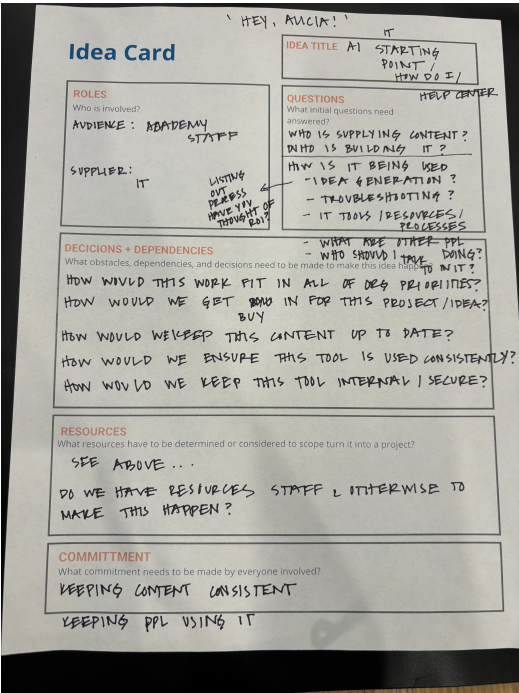 "HEY, ALICIA!"
Idea Card
IDEA TITLE AI IT STARTING
POINT /
HOW DO I /
HELP CENTER
ROLES
Who is involved?
AUDIENCE: ABADEMY
STAFF
SUPPLIER:
IT
LISTING
OUT
PROCESS
HAVE YOU
THOUGHT OF
ROI?
QUESTIONS
What initial questions need
answered?
WHO IS SUPPLYING CONTENT?
WHO IS BUILDING IT?
HOW IS IT BEING USED
- IDEA GENERATION?
- TROUBLESHOOTING?
- IT TOOLS / RESOURCES /
PROCESSES
- WHAT ARE OTHER PPL DOING?
- WHO SHOULD I TALK TO IN IT?
DECICIONS + DEPENDENCIES
What obstacles, dependencies, and decisions need to be made to make this idea happen?
HOW WOULD THIS WORK FIT IN ALL OF ORG PRIORITIES?
HOW WOULD WE GET BUY IN FOR THIS PROJECT / IDEA?
HOW WOULD WE KEEP THIS CONTENT UP TO DATE?
HOW WOULD WE ENSURE THIS TOOL IS USED CONSISTENTLY?
HOW WOULD WE KEEP THIS TOOL INTERNAL / SECURE?
RESOURCES
What resources have to be determined or considered to scope turn it into a project?
SEE ABOVE...
DO WE HAVE RESOURCES STAFF & OTHERWISE TO
MAKE THIS HAPPEN?
COMMITTMENT
What commitment needs to be made by everyone involved?
KEEPING CONTENT CONSISTENT
KEEPING PPL USING IT